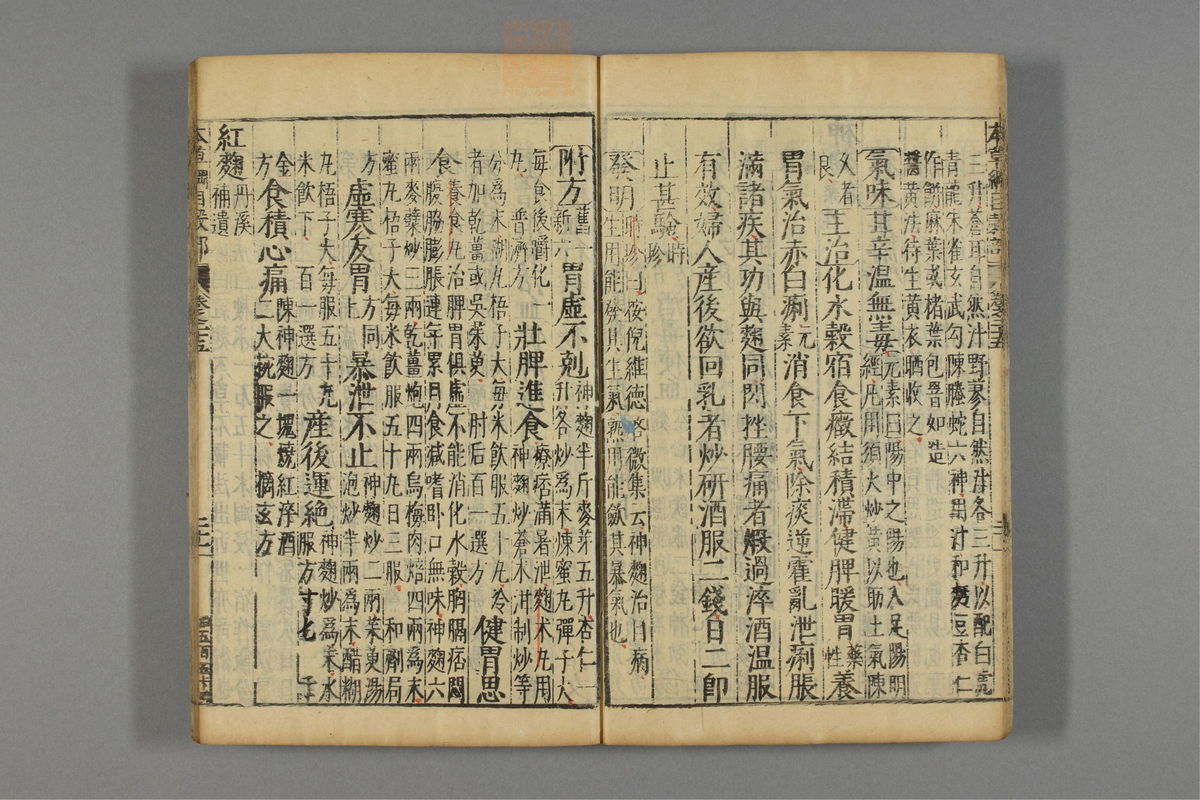 本草綱目穀部 卷之二十五
三升蒼耳自然汁野蓼自然汁各三升以配白虎
青龍朱雀玄武勾陳螣蛇六神用汁和麪豆杏仁
作餅麻葉或楮葉包罯如造
醬黃法待生黃衣曬收之
氣味甘辛溫無毒元素曰陽中之陽也入足陽明
經凡用須火炒黃以助土氣陳
久者
良 主治化水穀宿食癥結積滯健脾暖胃藥性養
胃氣治赤白痢元素消食下氣除痰逆霍亂泄痢脹
滿諸疾其功與麴同閃挫腰痛者煅過淬酒溫服
有效婦人產後欲回乳者炒研酒服二錢日二即
止甚驗時珍
發明時珍曰按倪維德微集云神麴治目病
生用能發其生氣熟用能斂其暴氣也
附方舊一新六胃虛不剋神麴半斤麥芽五升杏仁一
升各炒爲末煉蜜丸彈子大
每食後嚼化一
丸 普濟方 壯脾進食療痞滿暑泄麴术丸用
神麴炒蒼术泔制炒等
分爲末糊丸梧子大每米飲服五十丸冷
者加乾薑或吳茱萸 肘后百一選方 健胃思
食養食丸治脾胃俱虛不能消化水穀胸膈痞悶
腹脇膨脹連年累月食減嗜臥口無味神麴六
兩麥蘗炒三兩乾薑炮四兩烏梅肉焙四兩爲末
蜜丸梧子大每米飲服五十丸日三服 和劑局
方 虛寒反胃上方同 暴泄不止神麴炒二兩茱萸湯
泡炒半兩爲末醋糊
丸梧子大每服五十丸
米飲下 百一選方 產後運絕神麴炒爲末水
服方寸匕 千
金
方 食積心痛陳神麴一塊燒紅淬酒
二大碗服之 摘玄方
紅麴丹溪
神遺
本草綱目穀部 卷之二十五